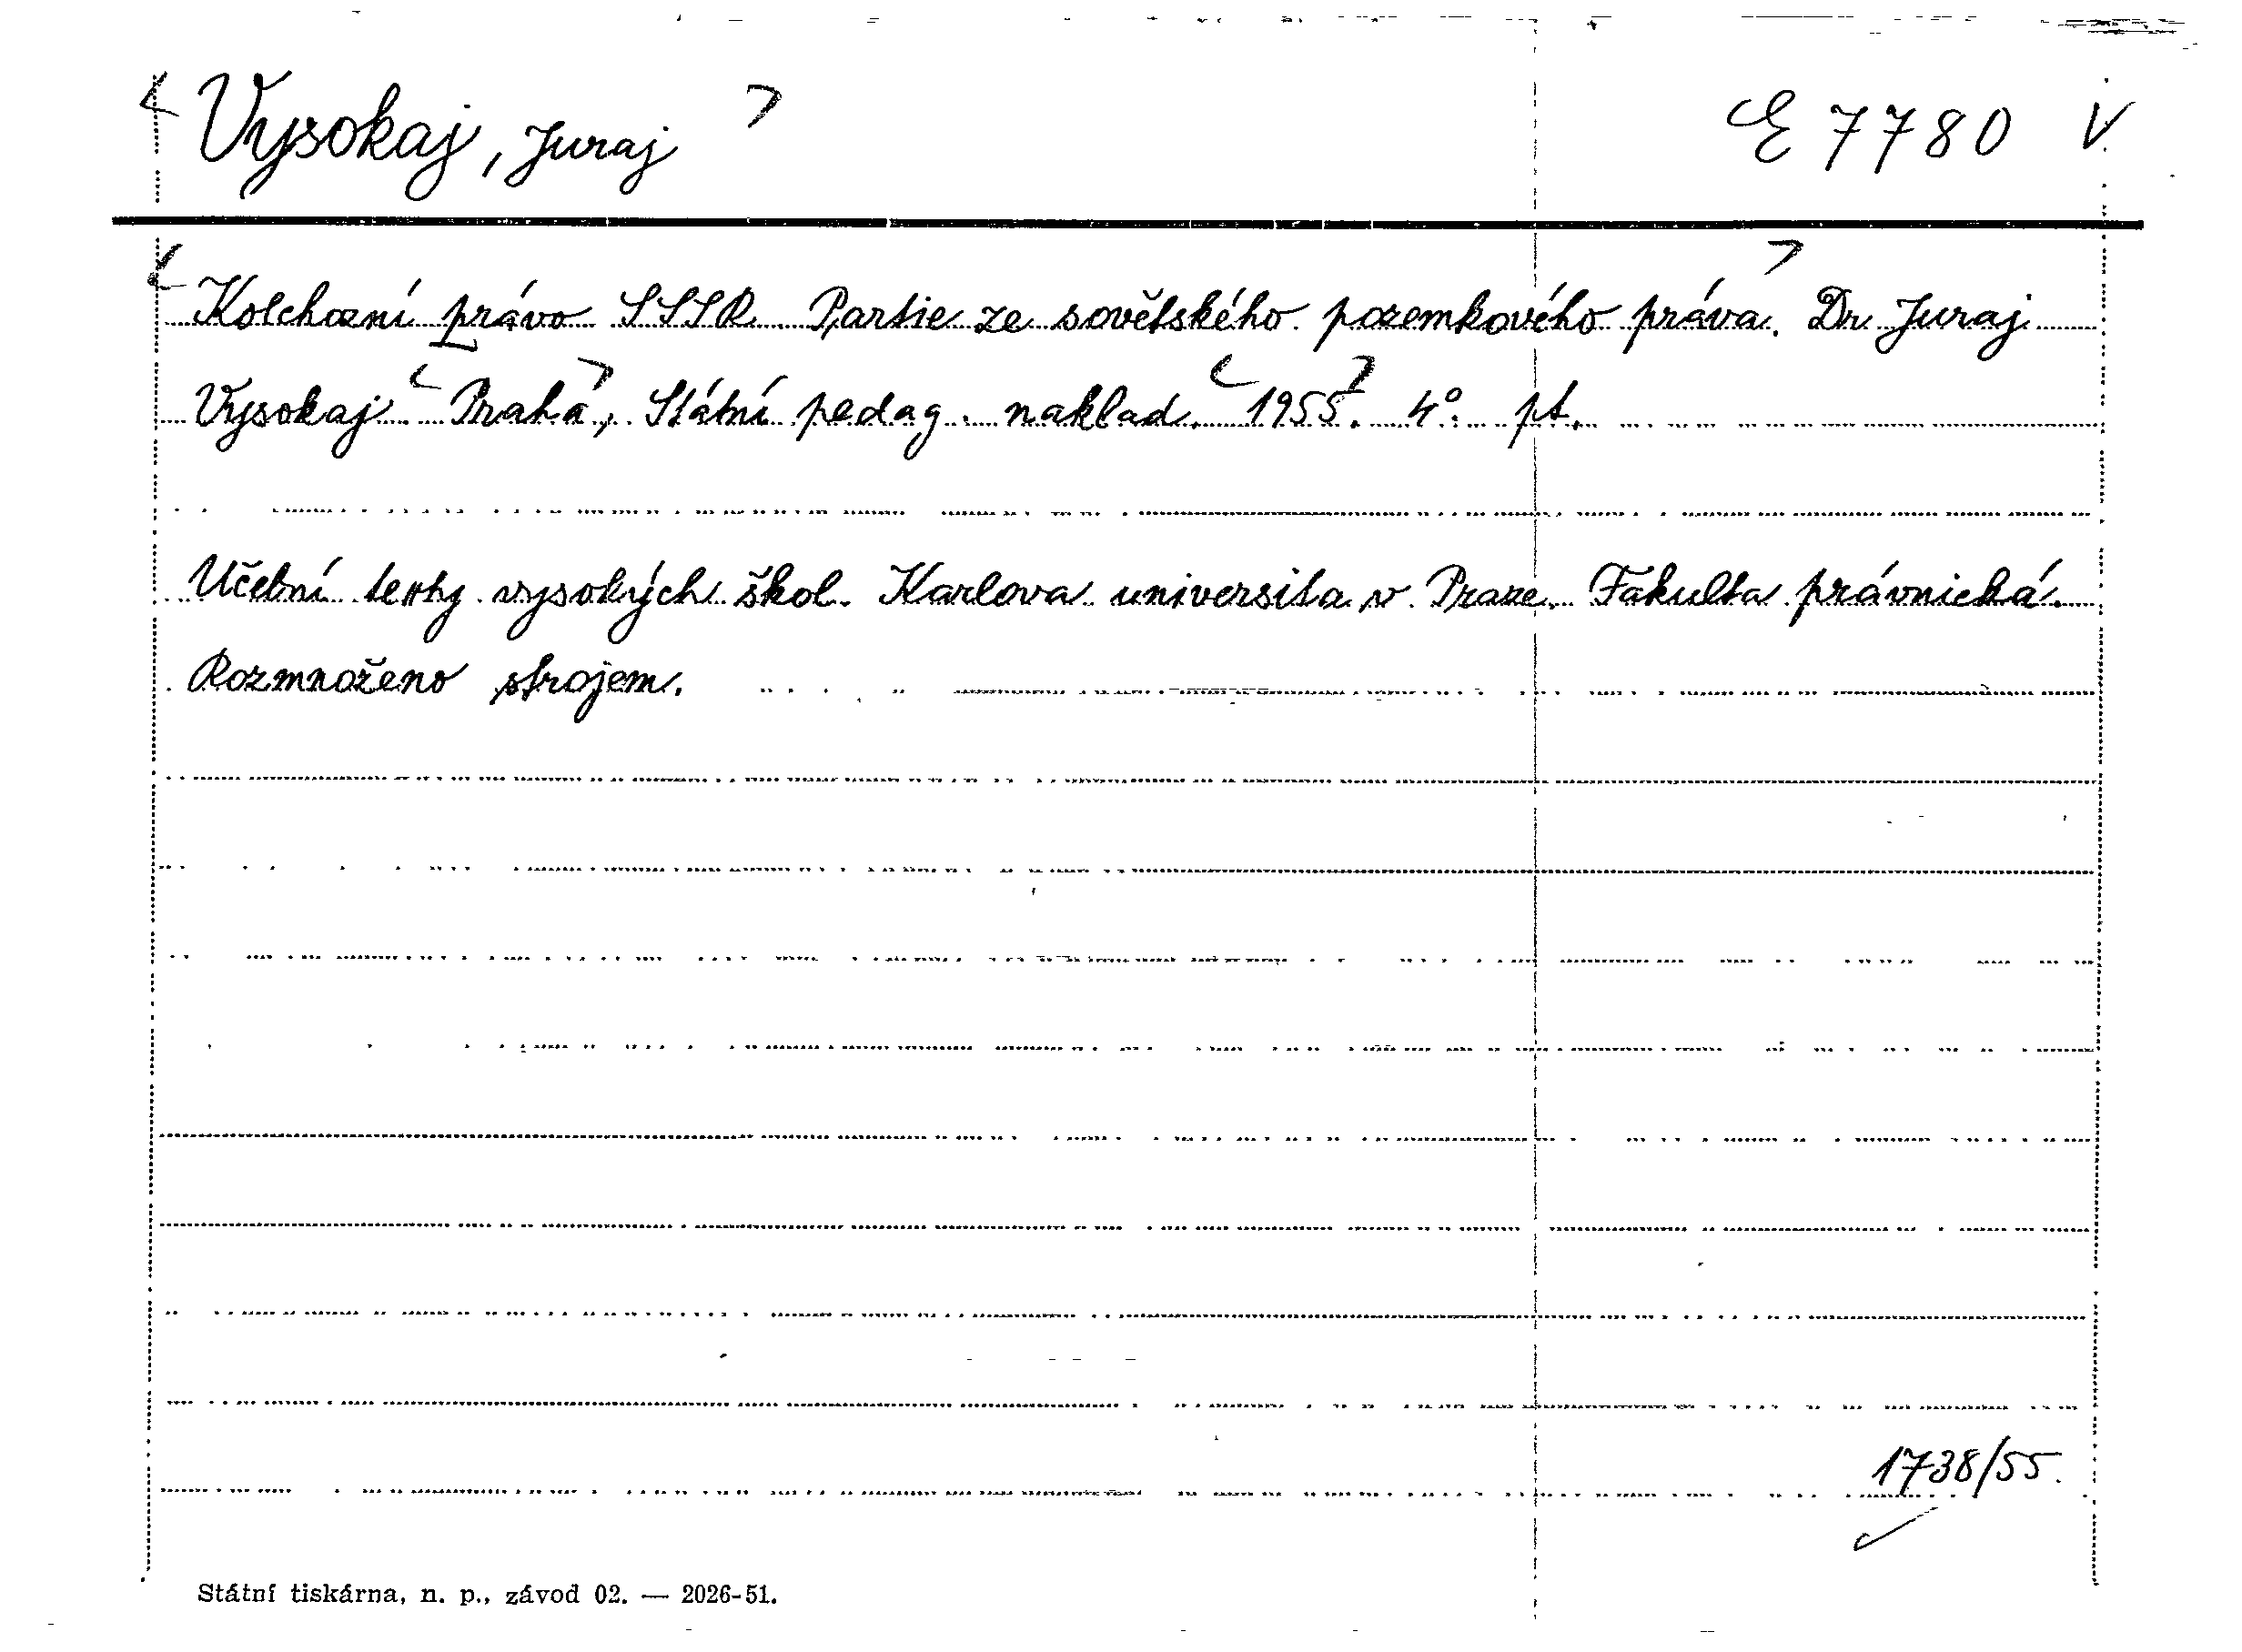 Vysokaj, Juraj E 7780 V
Kolchozní právo SSSR. Partie ze sovětského pozemkového práva. Dr. Juraj
Vysokaj. Praha, Státní pedag. naklad. 1955. 4°. pt.
Učební texty vysokých škol. Karlova universita v Praze. Fakulta právnická.
Rozmnoženo strojem.
1738/55.
Státní tiskárna, n. p., závod 02. — 2026-51.